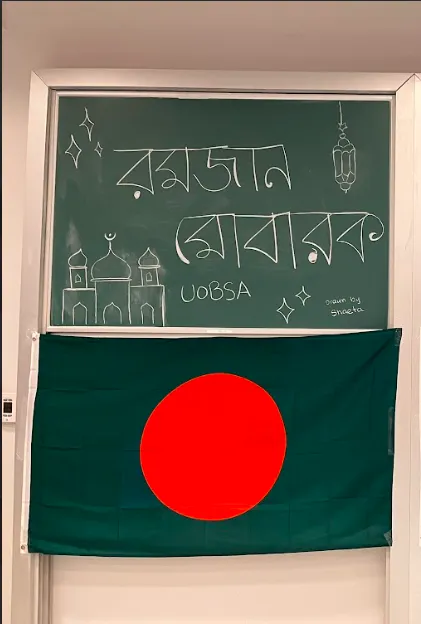 রমজান
মোবারক
UOBSA
Drawn by
Shaeta